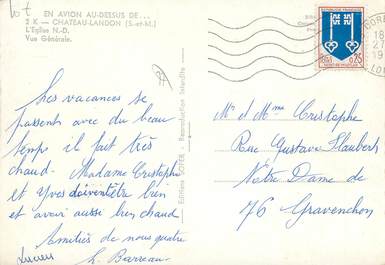 EN AVION AU-DESSUS DE...
2 K — CHATEAU-LANDON (S.-et-M.)
L'Eglise N.-D.
Vue Générale.
Les vacances se
passent avec du beau
temps il fait très
chaud. Madame Cristophe
et Yves doivent être bien
et avoir aussi bien chaud
Amitiés de nous quatre
Lucien L. Barreau
Editions SOFER - Reproduction Interdite
RÉPUBLIQUE FRANÇAISE
0,25
MONT-DE-MARSAN
18
27
19
Mr et Mme Cristophe
Rue Gustave Flaubert
Notre Dame de
76 Gravenchon